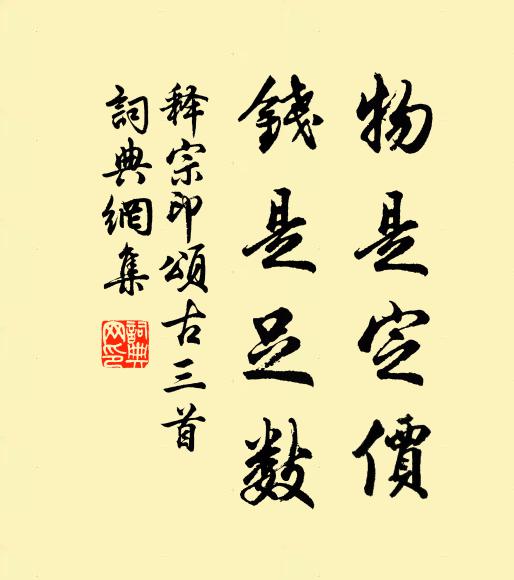 物是定價
錢是足数
释宗印頌古三首
詞典網集
詞典
网印